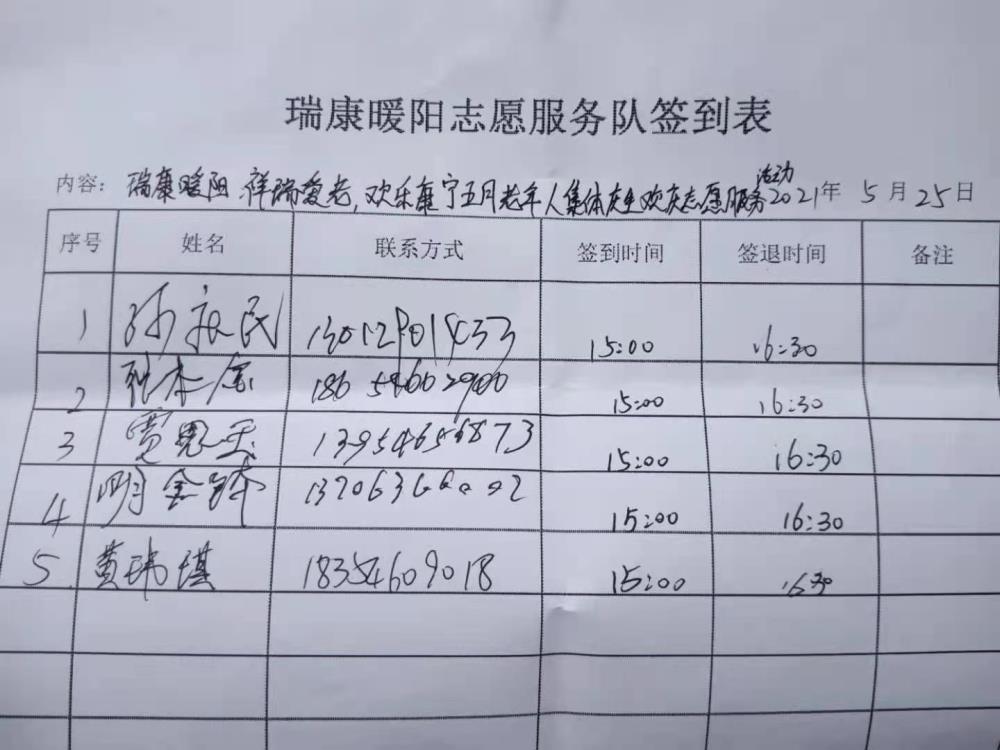 瑞康暖阳志愿服务队签到表
内容：瑞康暖阳 祥瑞爱老，欢乐康宁五月老年人集体庆生欢庆志愿服务活动 2021年 5月25日
序号 姓名 联系方式 签到时间 签退时间 备注
1 15:00 16:30
2 15:00 16:30
3 13954656873 15:00 16:30
4 明 15:00 16:30
5 黄玮堪 18354609018 15:00 16:30